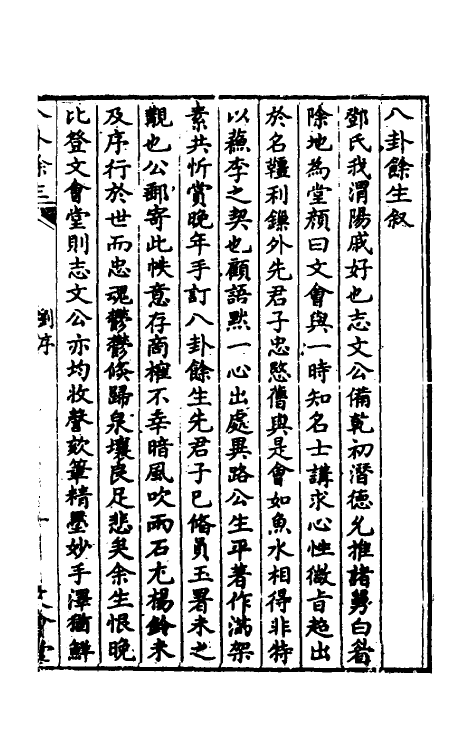 八卦餘生叙
鄧氏我渭陽戚好也志文公備乾初潛德允推諸舅白眉
除地為堂顏曰文會與一時知名士講求心性微旨超出
於名韁利鏁外先君子忠愍僭與是會如魚水相得非特
以蘇李之契也顧語默一心出處異路公生平著作滿架
素共忻賞晚年手訂八卦餘生先君子已偹員玉署未之
觀也公郵寄此帙意存商榷不幸暗風吹雨石尤楊鈴未
及序行於世而忠魂鬱鬱倐歸泉壤良足悲矣余生恨晚
比登文會堂則志文公亦均收聲欬筆精墨妙手澤猶鮮
八卦余三
劉序
文會堂